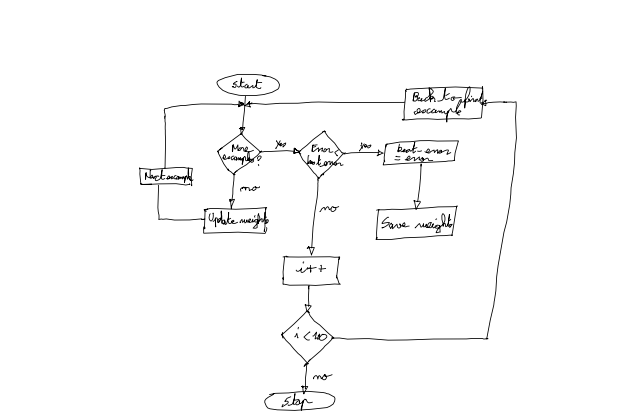 start
Back to first
example
More
examples?
yes
Error<
best error
yes
best-error
= error
Next example
no
Update weights
no
Save weights
i++
i < 100
no
stop